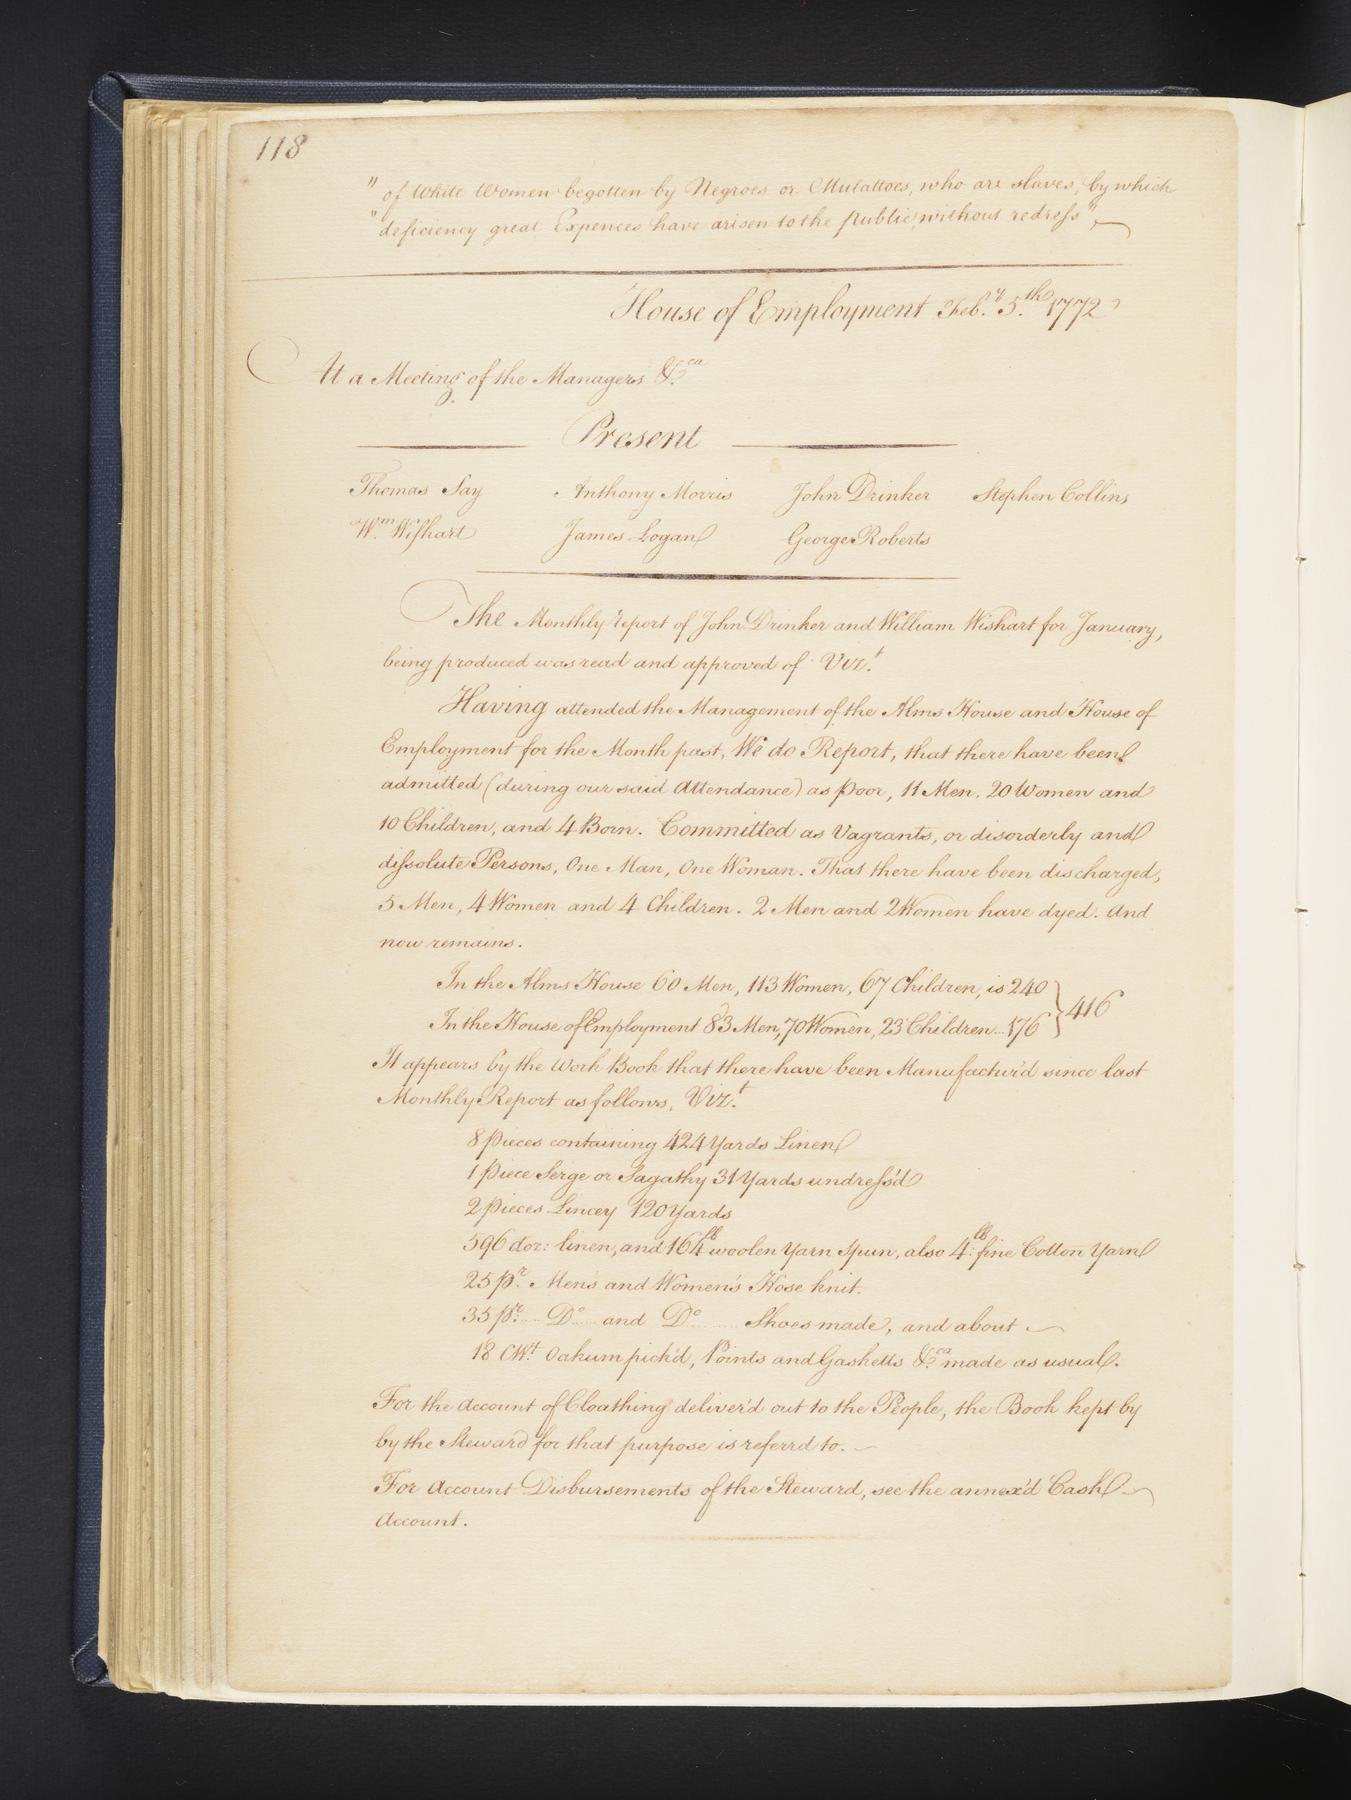 118
" of White Women begotten by Negroes or Mulattoes, who are slaves, by which
" deficiency great Expences have arisen to the public, without redress",
House of Employment Feb.y 5.th 1772
At a Meeting of the Managers &.ca
Present
Thomas Say Anthony Morris John Drinker Stephen Collins
W.m Wishart James Logan George Roberts
The Monthly report of John Drinker and William Wishart for January,
being produced was read and approved of Viz.t
Having attended the Management of the Alms House and House of
Employment for the Month past, We do Report, that there have been
admitted (during our said Attendance) as Poor, 11 Men. 20 Women and
10 Children, and 4 Born. Committed as Vagrants, or disorderly and
dissolute Persons, One Man, One Woman. That there have been discharged,
5 Men, 4 Women and 4 Children. 2 Men and 2 Women have dyed. And
now remains.
In the Alms House 60 Men, 113 Women, 67 Children, is 240
In the House of Employment 83 Men, 70 Women, 23 Children... 176 } 416
It appears by the Work Book that there have been Manufactur'd since last
Monthly Report as follows, Viz.t
8 Pieces containing 424 Yards Linen
1 Piece Serge or Sagathy 31 Yards undress'd
2 Pieces Lincey 120 Yards
596 doz: linen, and 164 lb woolen Yarn Spun, also 4 lb: fine Cotton Yarn
25 p.r Men's and Women's Hose knit.
35 p.r.... D.o.... and D.o........ Shoes made, and about
18 CW.t Oakum pick'd, Points and Gasketts &.ca made as usual.
For the Account of Cloathing deliver'd out to the People, the Book kept by
by the Steward for that purpose is referrd to.
For Account Disbursements of the Steward, see the annex'd Cash
Account.